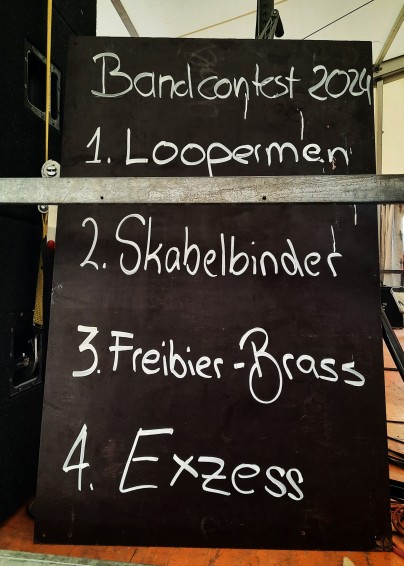 Bandcontest 2024
1. Loopermen
2. Skabelbinder
3. Freibier-Brass
4. Exzess